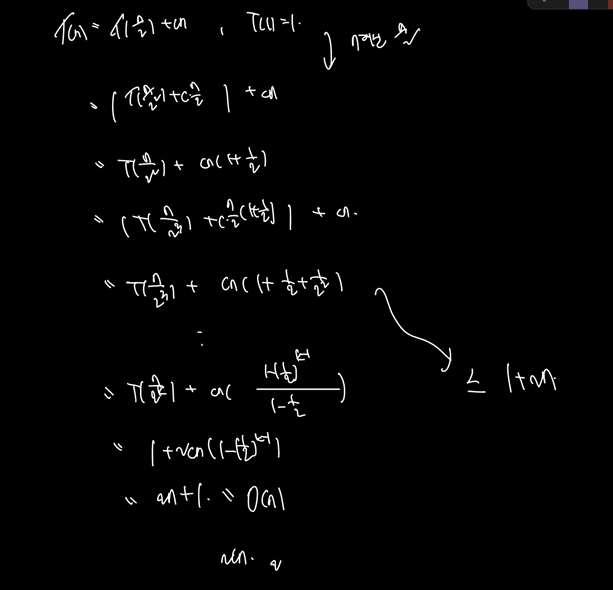 T(n) = T(n/2) + cn , T(1) = 1.
= (T(n/2²) + c n/2) + cn
= T(n/2²) + cn(1+1/2)
= (T(n/2³) + c n/2 (1+1/2)) + cn.
= T(n/2³) + cn(1+1/2+1/2²)
⋮
= T(n/2ᵏ) + cn( (1-(1/2)ᵏ⁻¹)/(1-1/2) ) ≤ 1+2cn.
= 1+2cn(1-(1/2)ᵏ⁻¹)
= an+1. = O(n)